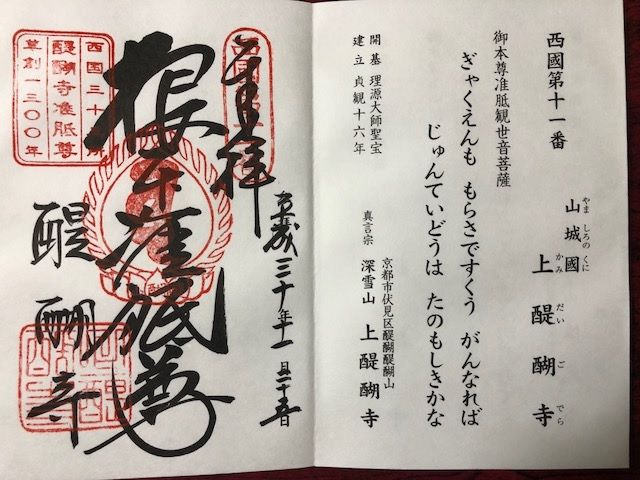 西國第十一番
山城國 上醍醐寺
やま しろの くに かみ だい ご でら
御本尊准胝観世音菩薩
ぎゃくえんも もらさですくう がんなれば
じゅんていどうは たのもしきかな
開基 理源大師聖宝
建立 貞観十六年
京都市伏見区醍醐醍醐山
真言宗 深雪山 上醍醐寺
奉拝
平成三十年十一月二十五日
根本准胝尊
醍醐寺
西国三十三所
醍醐寺准胝尊
草創一三〇〇年